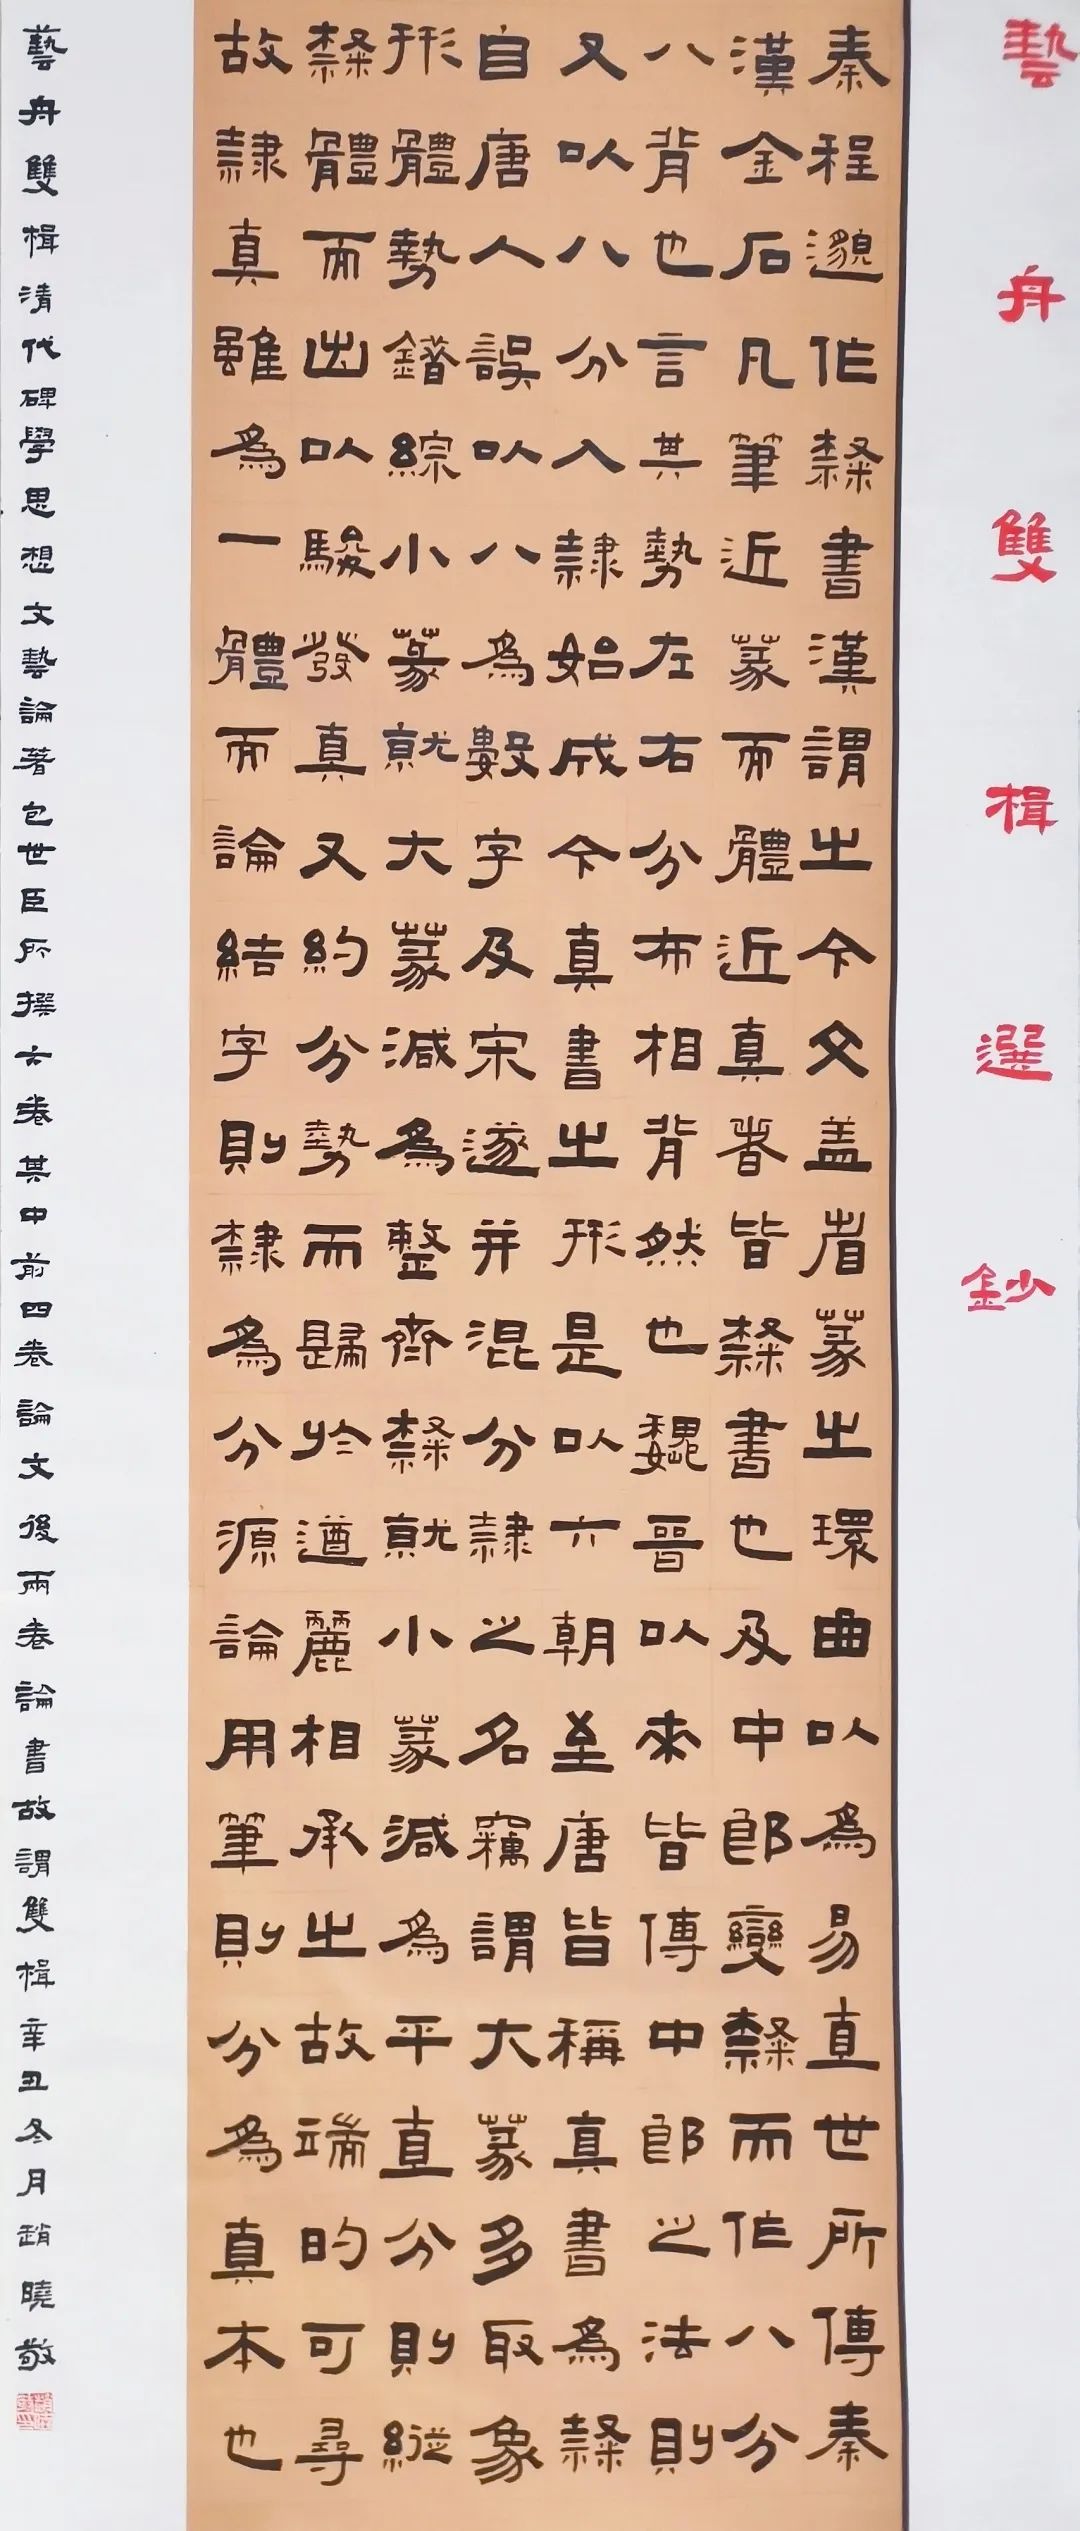 藝舟雙楫選鈔
秦程邈作隸書漢謂之今文盖省篆之環曲以為易直世所傳秦
漢金石凡筆近篆而體近真者皆隸書也及中郎變隸而作八分
八背也言其勢左右分布相背然也魏晉以來皆傳中郎之法則
又以八分入隸始成今真書之形是以六朝至唐皆稱真書為隸
自唐人誤以八為數字及宋遂并混分隸之名竊謂大篆多取象
形體勢錯綜小篆就大篆減為整齊隸就小篆減為平直分則縱
隸體而出以駿發真又約分勢而歸於遒麗相承之故端的可尋
故隸真雖為一體而論結字則隸為分源論用筆則分為真本也
藝舟雙楫清代碑學思想文藝論著包世臣所撰六卷其中前四卷論文後兩卷論書故謂雙楫辛丑冬月趙曉敬